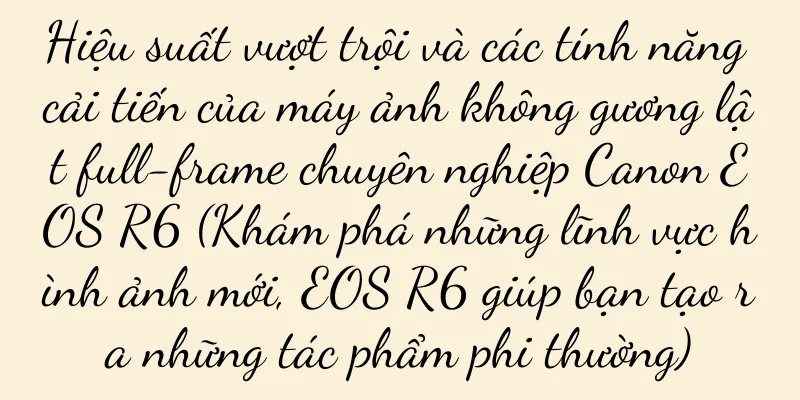 Hiệu suất vượt trội và các tính năng
cải tiến của máy ảnh không gương lậ
t full-frame chuyên nghiệp Canon E
OS R6 (Khám phá những lĩnh vực h
ình ảnh mới, EOS R6 giúp bạn tạo r
a những tác phẩm phi thường)